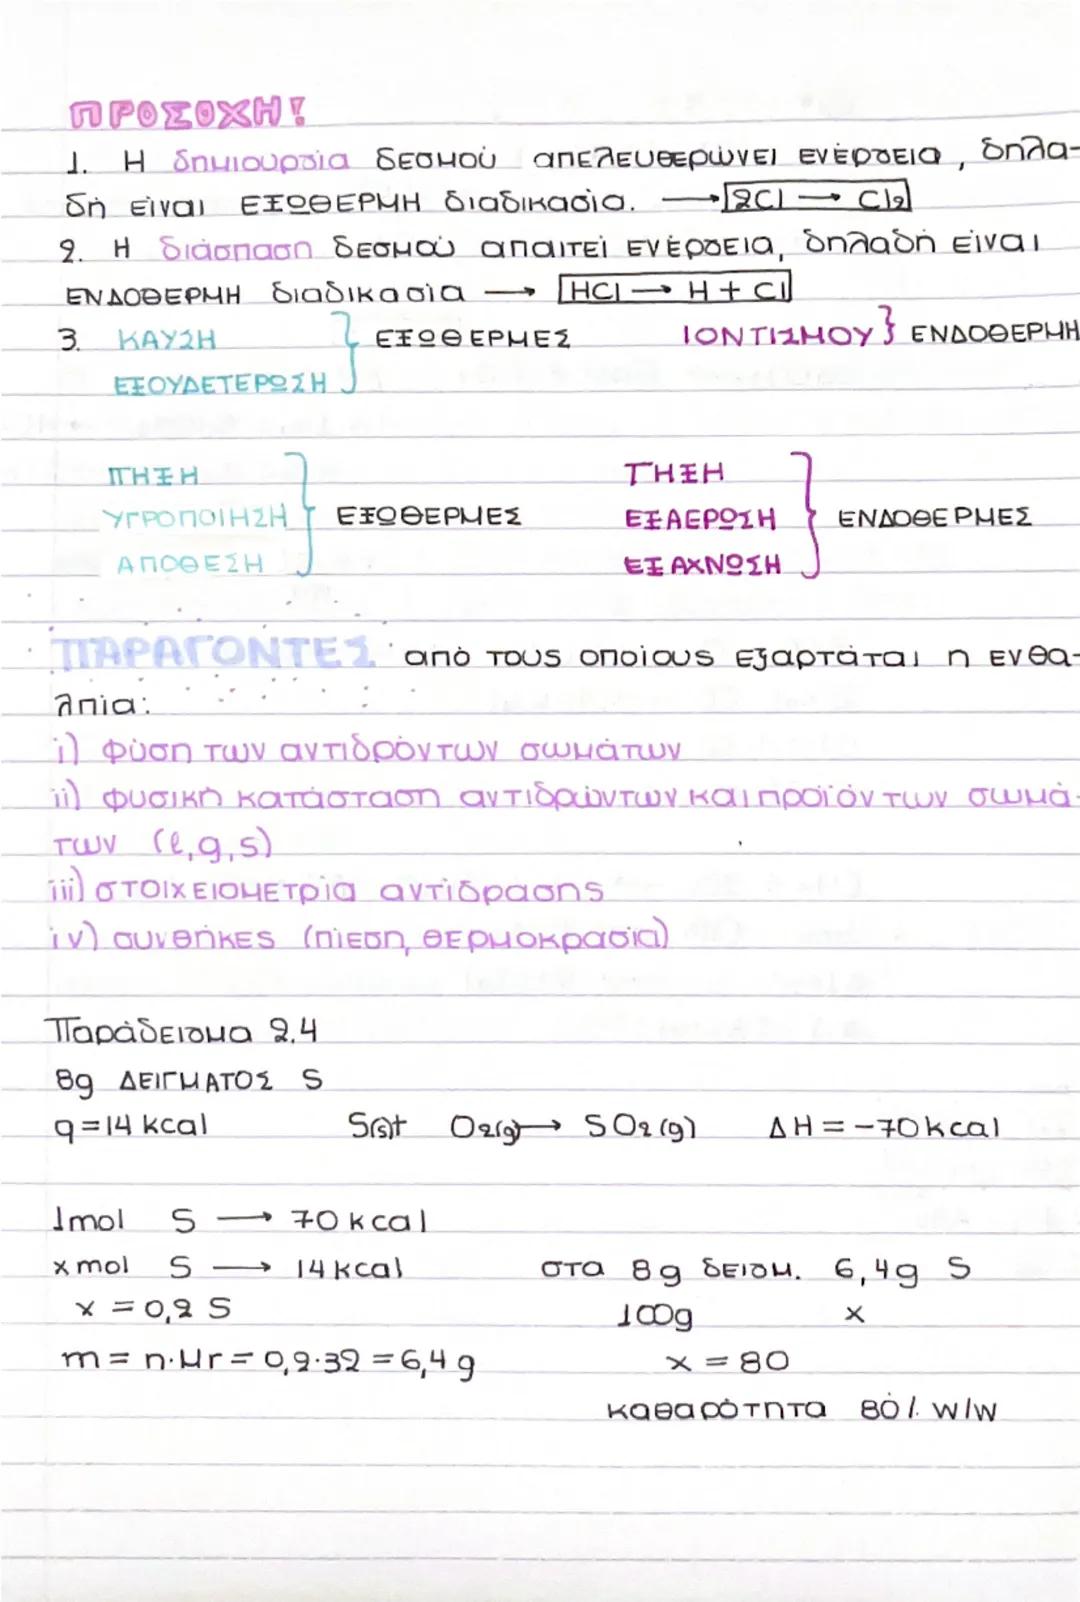 ΠΡΟΣΟΧΗ!
1. Η δημιουργία δεσμού απελευθερώνει ενέργεια, δηλα-
δή είναι ΕΞΩΘΕΡΜΗ διαδικασία. → 2Cl → Cl2
2. Η διάσπαση δεσμού απαιτεί ενέργεια, δηλαδή είναι
ΕΝΔΟΘΕΡΜΗ διαδικασία → HCl → H + Cl
3. ΚΑΥΣΗ } ΕΞΩΘΕΡΜΕΣ ΙΟΝΤΙΣΜΟΥ } ΕΝΔΟΘΕΡΜΗ
ΕΞΟΥΔΕΤΕΡΩΣΗ
ΠΗΞΗ ΤΗΞΗ
ΥΓΡΟΠΟΙΗΣΗ } ΕΞΩΘΕΡΜΕΣ ΕΞΑΕΡΩΣΗ } ΕΝΔΟΘΕΡΜΕΣ
ΑΠΟΘΕΣΗ ΕΞΑΧΝΩΣΗ
ΠΑΡΑΓΟΝΤΕΣ από τους οποίους εξαρτάται η ενθα-
λπία:
i) φύση των αντιδρόντων σωμάτων
ii) φυσική κατάσταση αντιδρώντων και προϊόντων σωμά-
των (l,g,s)
iii) στοιχειομετρία αντίδρασης
iv) συνθήκες (πίεση, θερμοκρασία)
Παράδειγμα 2.4
8g ΔΕΙΓΜΑΤΟΣ S
q = 14 kcal S(s)+ O2(g) → SO2(g) ΔH = -70kcal
1mol S → 70 kcal
x mol S → 14 kcal στα 8g δειγμ. 6,4g S
x = 0,2 S 100g x
m = n·Mr = 0,2·32 = 6,4 g x = 80
καθαρότητα 80% w/w